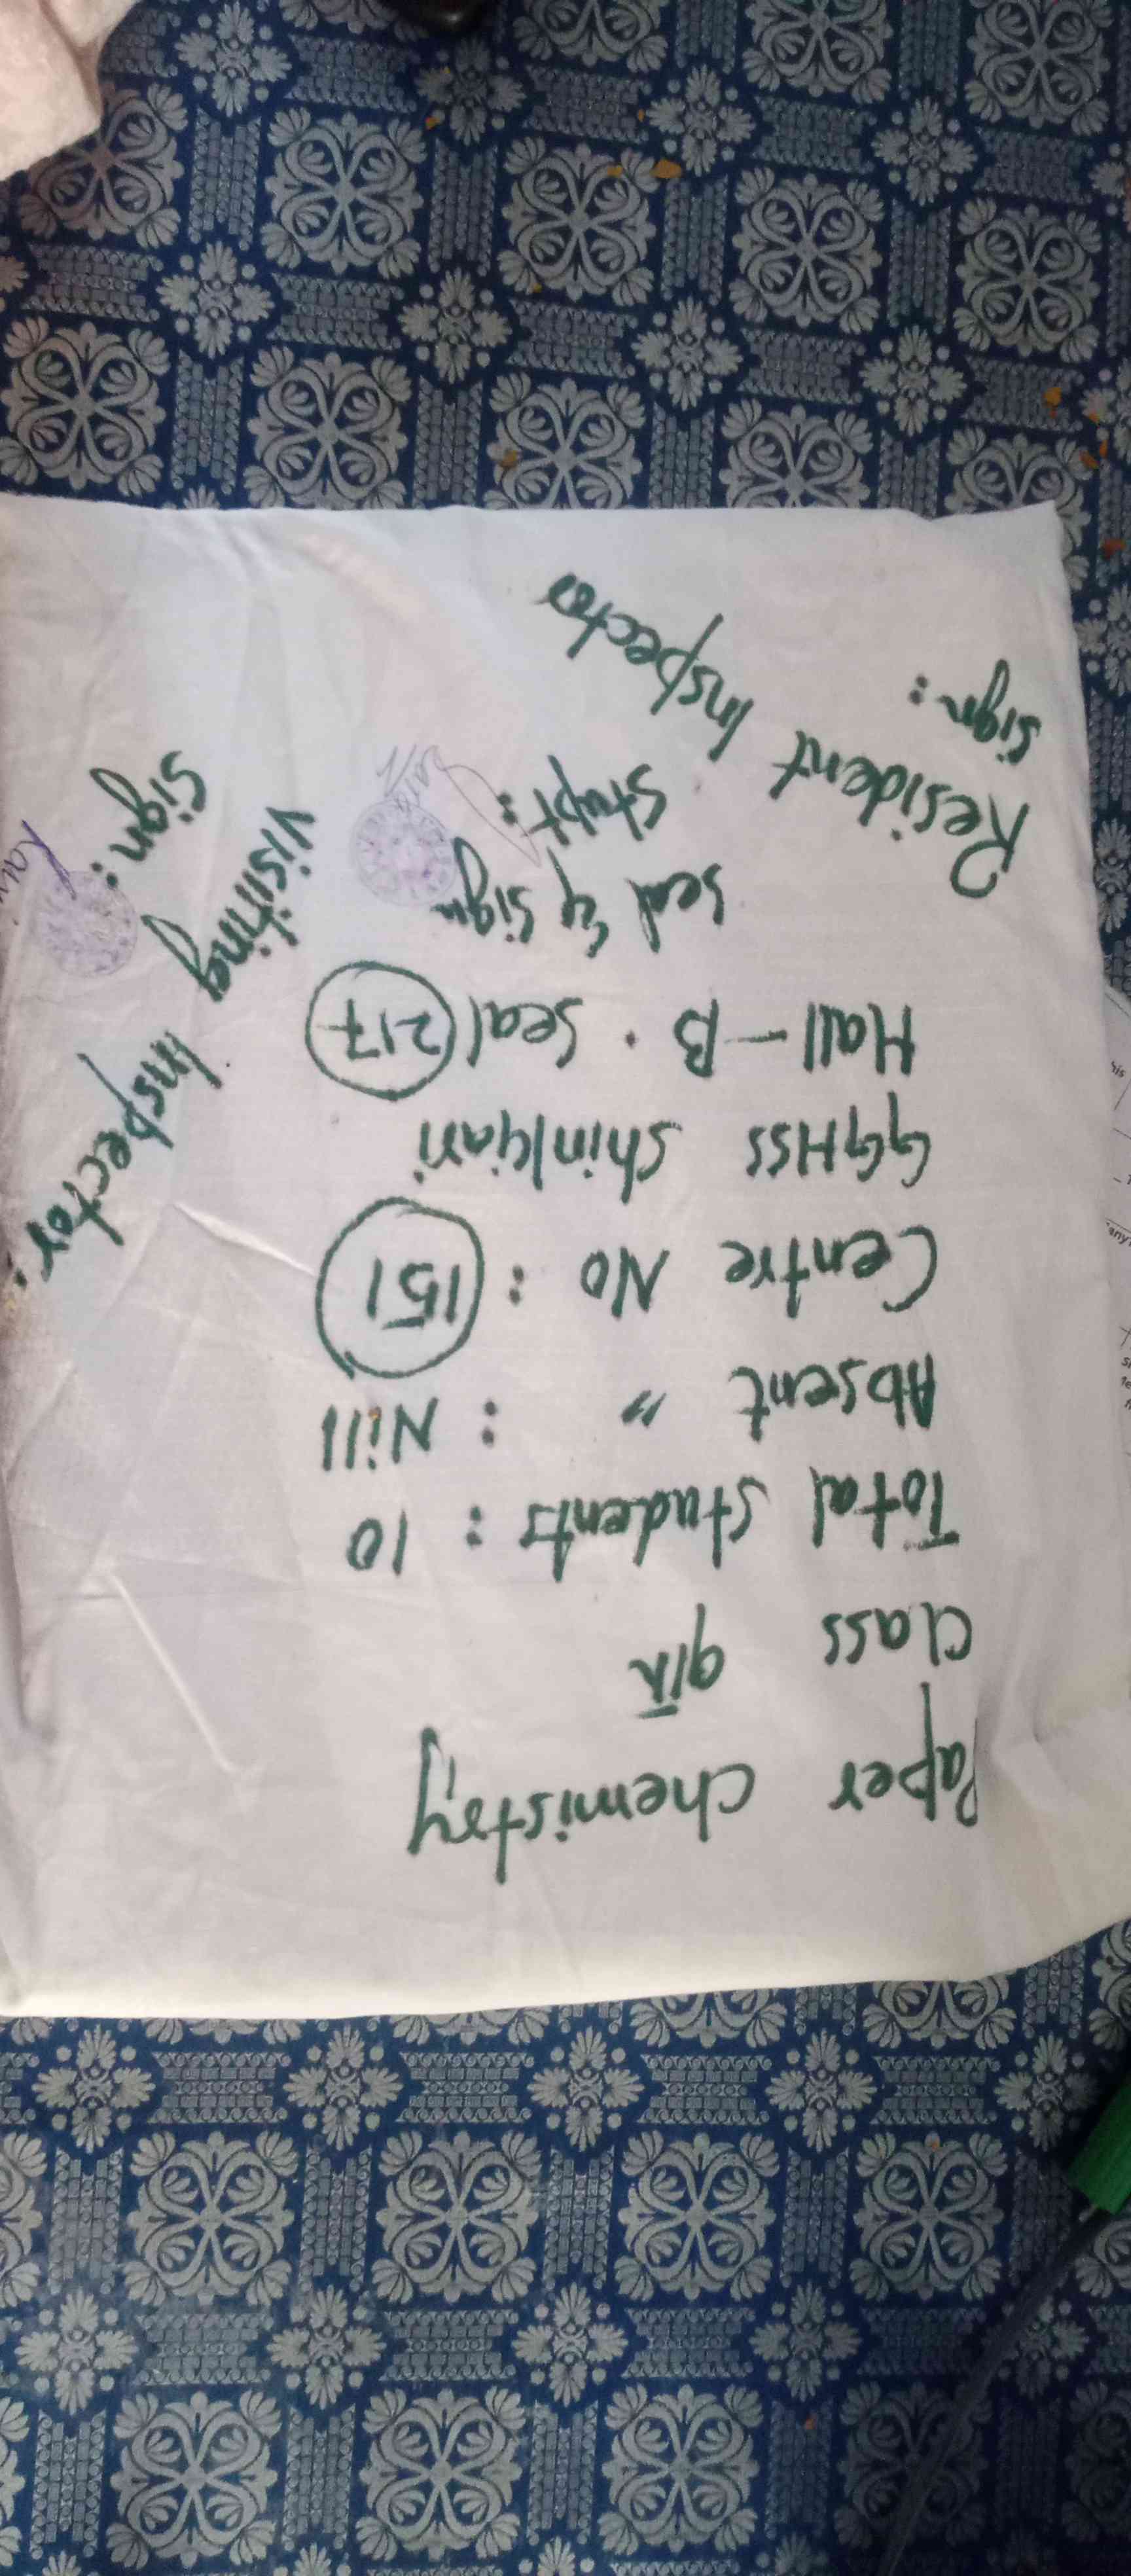 Paper Chemistry
Class 9th
Total Students : 10
Absent " : Nill
Centre No : 151
GGHSS Shinkiari
Hall - B . Seal 217
Seal & Sign
Stupt:
Resident Inspector
Sign:
Visiting Inspector.
Sign: